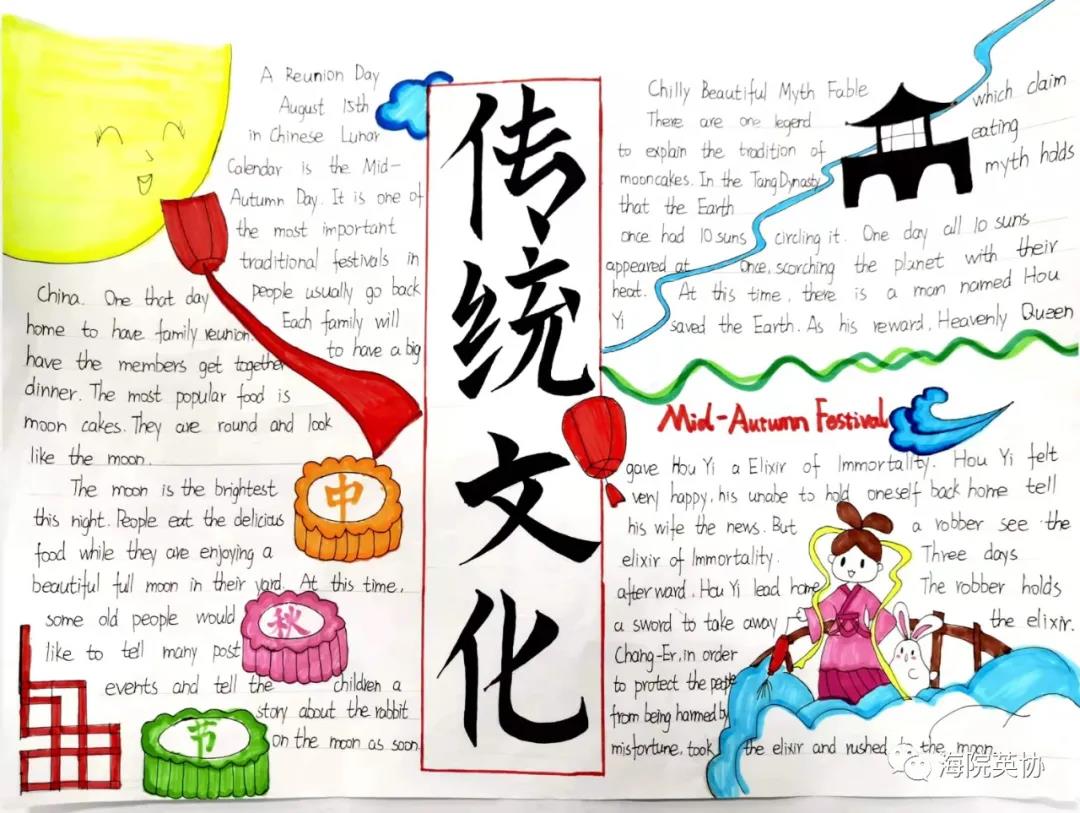 A Reunion Day
August 15th
in Chinese Lunar
Calendar is the Mid-
Autumn Day. It is one of
the most important
traditional festivals in
China. One that day people usually go back
home to have family reunion. Each family will
have the members get together to have a big
dinner. The most popular food is
moon cakes. They are round and look
like the moon.
The moon is the brightest
this night. People eat the delicious
food while they are enjoying a
beautiful full moon in their yard. At this time,
some old people would
like to tell many post
events and tell the children a
story about the rabbit
on the moon as soon.
中
秋
节
传
统
文
化
Chilly Beautiful Myth Fable
There are one legend which claim
to explain the tradition of eating
mooncakes. In the Tang Dynasty myth holds
that the Earth
once had 10 suns circling it. One day all 10 suns
appeared at once, scorching the planet with their
heat. At this time, there is a man named Hou
Yi saved the Earth. As his reward, Heavenly Queen
Mid-Autumn Festival
gave Hou Yi a Elixir of Immortality. Hou Yi felt
very happy, his unabe to hold oneself back home tell
his wife the news. But a robber see the
elixir of Immortality. Three days
afterward, Hou Yi lead home The robber holds
a sword to take away the elixir.
Chang-Er, in order
to protect the people
from being harmed by
misfortune, took the elixir and rushed to the moon
海院英协